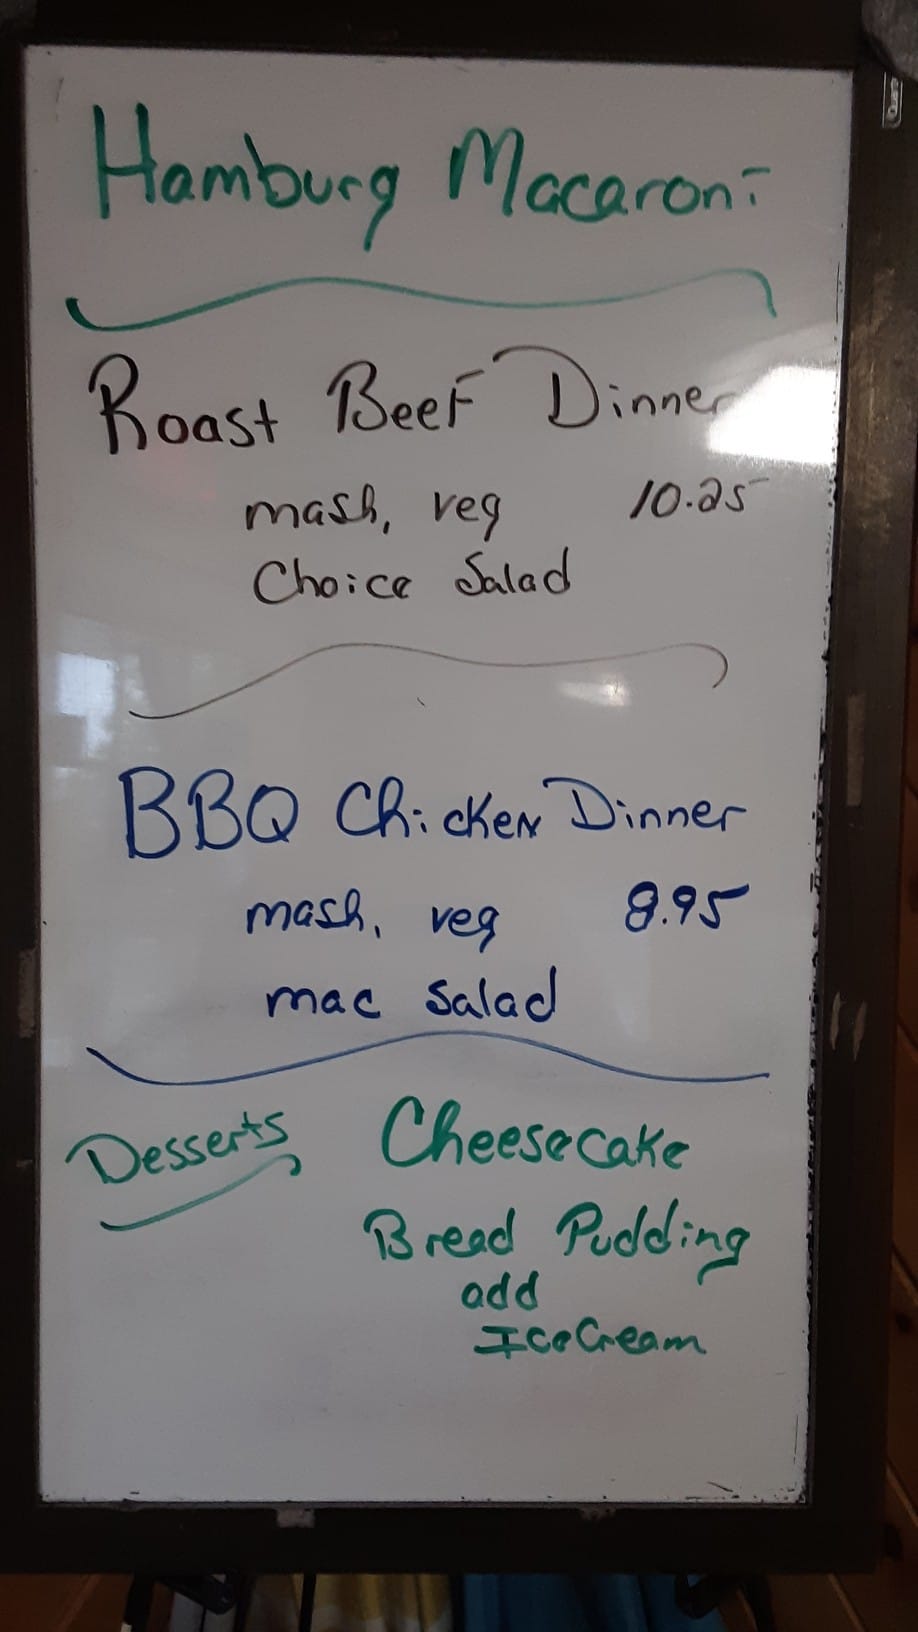 Hamburg Macaroni
Roast Beef Dinner
mash, veg 10.25
Choice Salad
BBQ Chicken Dinner
mash, veg 8.95
mac Salad
Desserts Cheesecake
Bread Pudding
add
Ice Cream